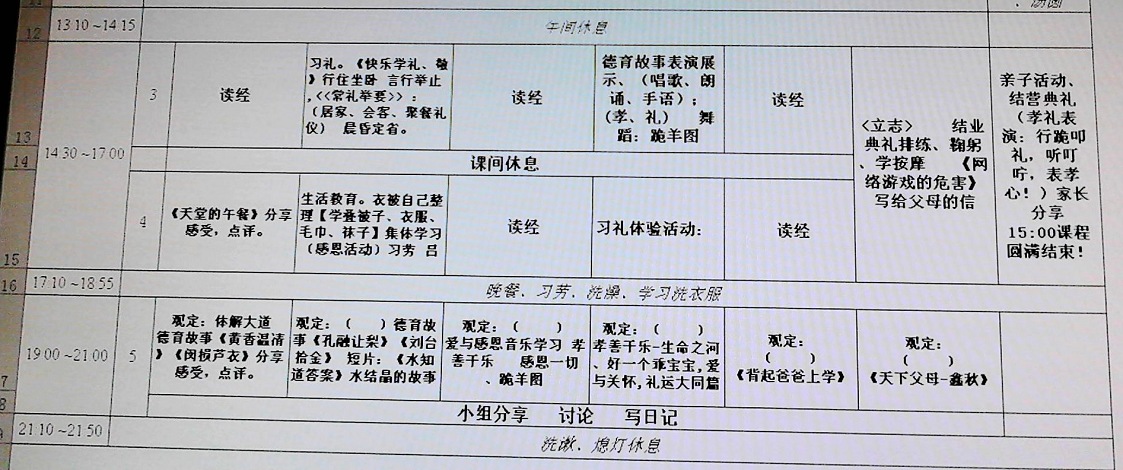 11
、汤圆
12
13:10~14:15
午间休息
13
14:30~17:00
3
读经
习礼。《快乐学礼、敬
》行住坐卧 言行举止
,<<常礼举要>>:
(居家、会客、聚餐礼
仪) 晨昏定省。
读经
德育故事表演展
示、(唱歌、朗
诵、手语);
(孝、礼) 舞
蹈: 跪羊图
读经
<立志> 结业
典礼排练、鞠躬
、学按摩 《网
络游戏的危害》
写给父母的信
亲子活动、
结营典礼
(孝礼表
演: 行跪叩
礼, 听叮
咛, 表孝
心!)家长
分享
15:00课程
圆满结束!
14
课间休息
15
4
《天堂的午餐》分享
感受, 点评。
生活教育。衣被自己整
理【学叠被子、衣服、
毛巾、袜子】集体学习
(感恩活动)习劳 吕
读经
习礼体验活动:
读经
16
17:10~18:55
晚餐、习劳、洗澡、学习洗衣服
7
19:00~21:00
5
观定: 体解大道
德育故事《黄香温清
》《闵损芦衣》分享
感受, 点评。
观定: ( )德育故
事《孔融让梨》《刘台
拾金》 短片: 《水知
道答案》水结晶的故事
观定: ( )
爱与感恩音乐学习 孝
善干乐 感恩一切
、跪羊图
观定: ( )
孝善干乐-生命之河
、好一个乖宝宝,爱
与关怀,礼运大同篇
观定:
( )
《背起爸爸上学》
观定:
( )
《天下父母-鑫秋》
8
小组分享 讨论 写日记
21:10~21:50
洗漱、熄灯休息